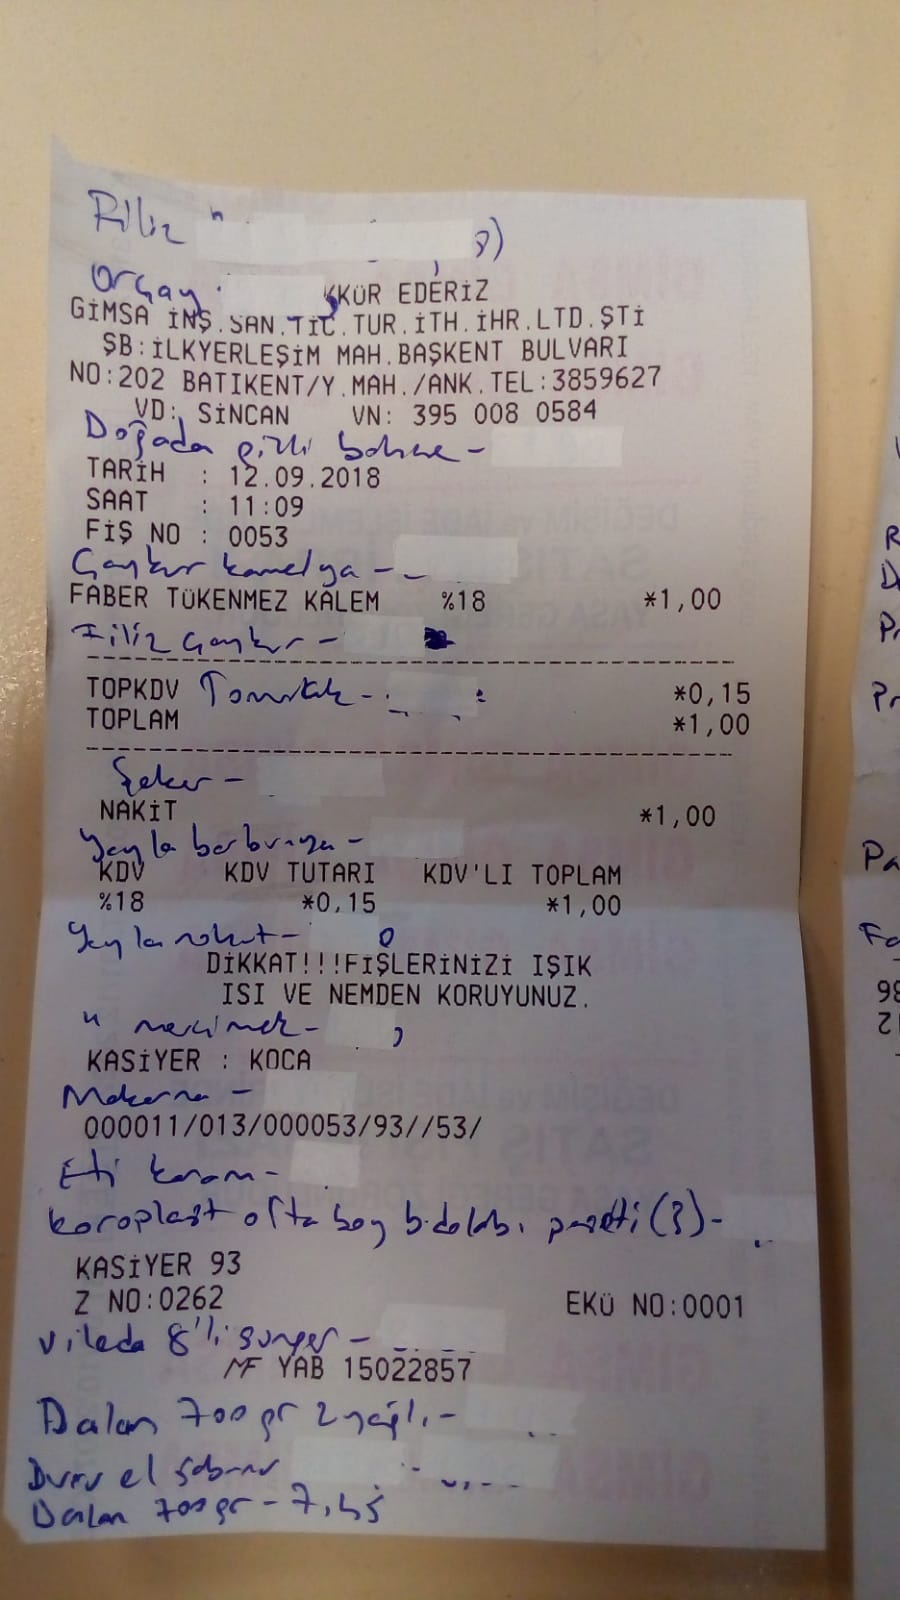 Filiz "
Orçay
KKÜR EDERİZ
GİMSA İNŞ.SAN.TİC.TUR.İTH.İHR.LTD.ŞTİ
ŞB:İLKYERLEŞİM MAH.BAŞKENT BULVARI
NO:202 BATIKENT/Y.MAH./ANK.TEL:3859627
VD: SİNCAN VN: 395 008 0584
Doğada gizli bohçe -
TARİH : 12.09.2018
SAAT : 11:09
FİŞ NO : 0053
Çaykur kamelya -
FABER TÜKENMEZ KALEM %18 *1,00
Filiz çaykur -
TOPKDV *0,15
Tomurcuk -
TOPLAM *1,00
Şeker -
NAKİT *1,00
Yayla barbunya -
KDV KDV TUTARI KDV'LI TOPLAM
%18 *0,15 *1,00
Yayla nohut -
DİKKAT!!!FİŞLERİNİZİ IŞIK
ISI VE NEMDEN KORUYUNUZ.
" mercimek -
KASİYER : KOCA
Makarna -
000011/013/000053/93//53/
Eti karam -
koroplast orta boy b.dolabı poşeti (3) -
KASİYER 93
Z NO:0262 EKÜ NO:0001
Vileda 8'li sünger -
MF YAB 15022857
Dalan 700 gr z.yağlı -
Duru el sabunu
Dalan 700 gr - 7,45